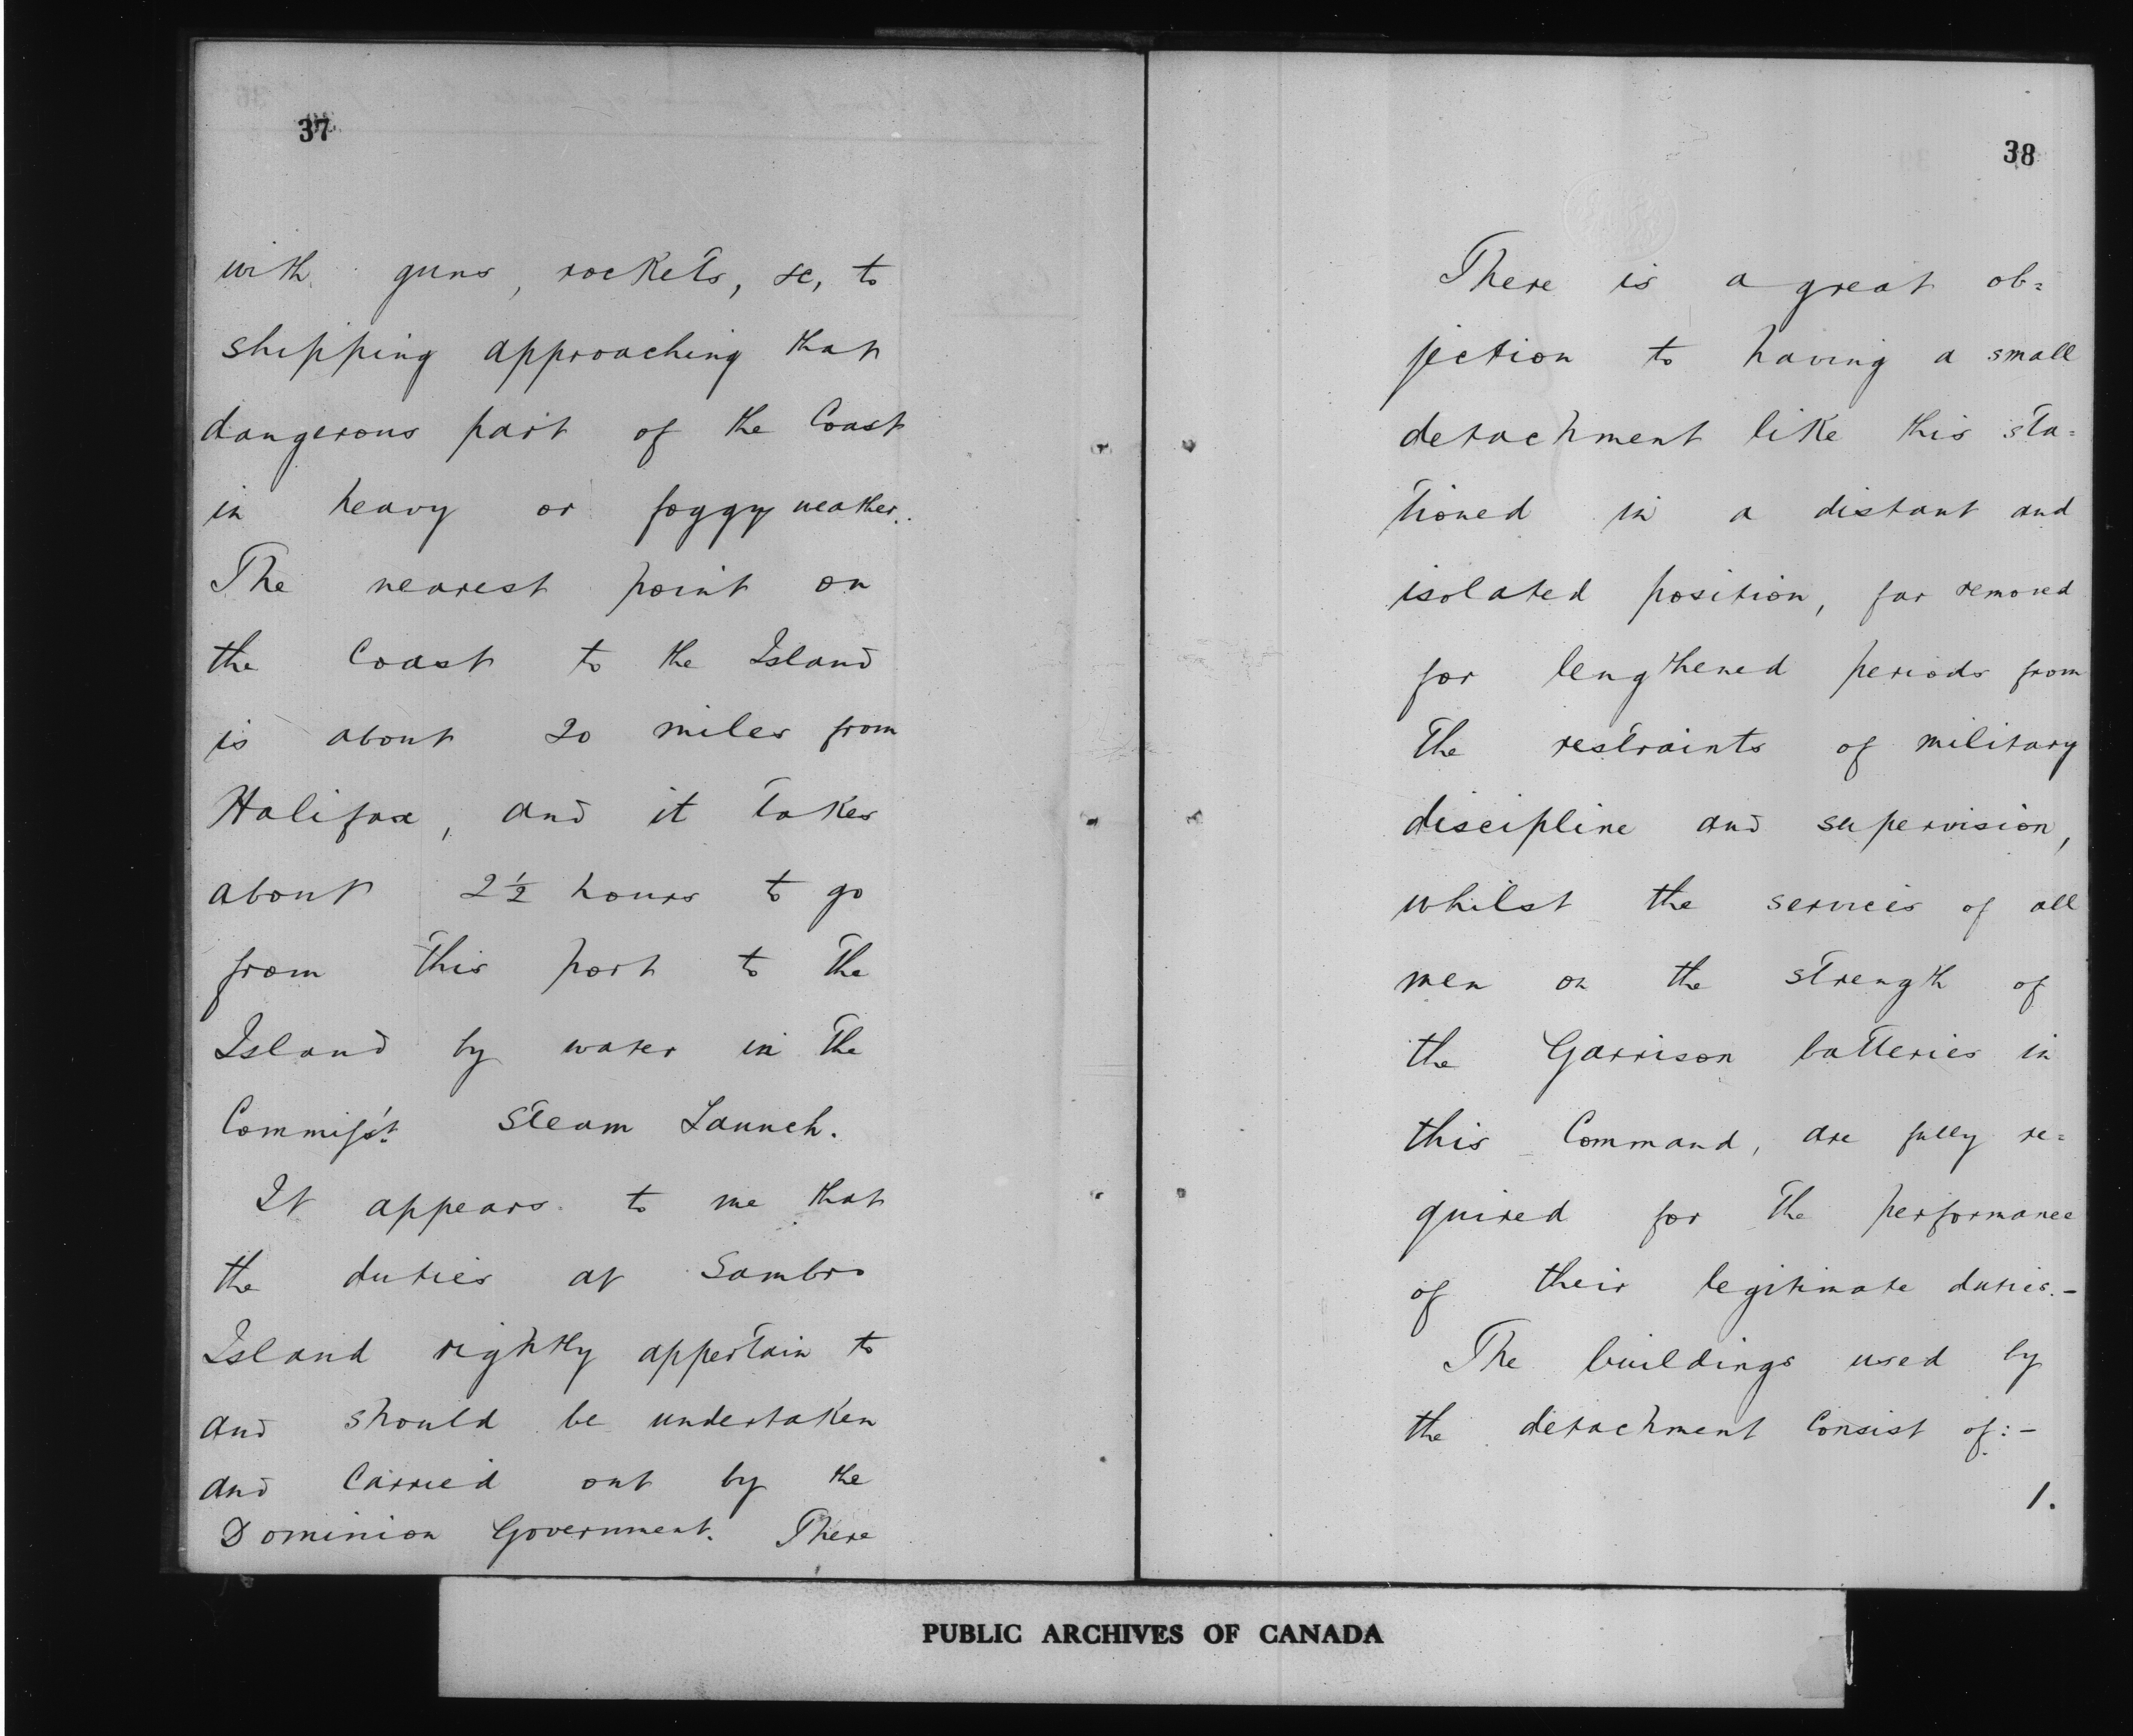 37
with guns, rockets, &c, to
shipping approaching that
dangerous part of the Coast
in heavy or foggy weather.
The nearest point on
the Coast to the Island
is about 20 miles from
Halifax, and it takes
about 2½ hours to go
from this port to the
Island by water in the
Commiss't Steam Launch.
It appears to me that
the duties at Sambro
Island rightly appertain to
and should be undertaken
and Carried out by the
Dominion Government. There
38
There is a great ob=
jection to having a small
detachment like this sta=
tioned in a distant and
isolated position, far removed
for lengthened periods from
the restraints of military
discipline and supervision,
whilst the services of all
men on the strength of
the Garrison batteries in
this Command, are fully re=
quired for the performance
of their legitimate duties.-
The buildings used by
the detachment Consist of:-
1.
PUBLIC ARCHIVES OF CANADA